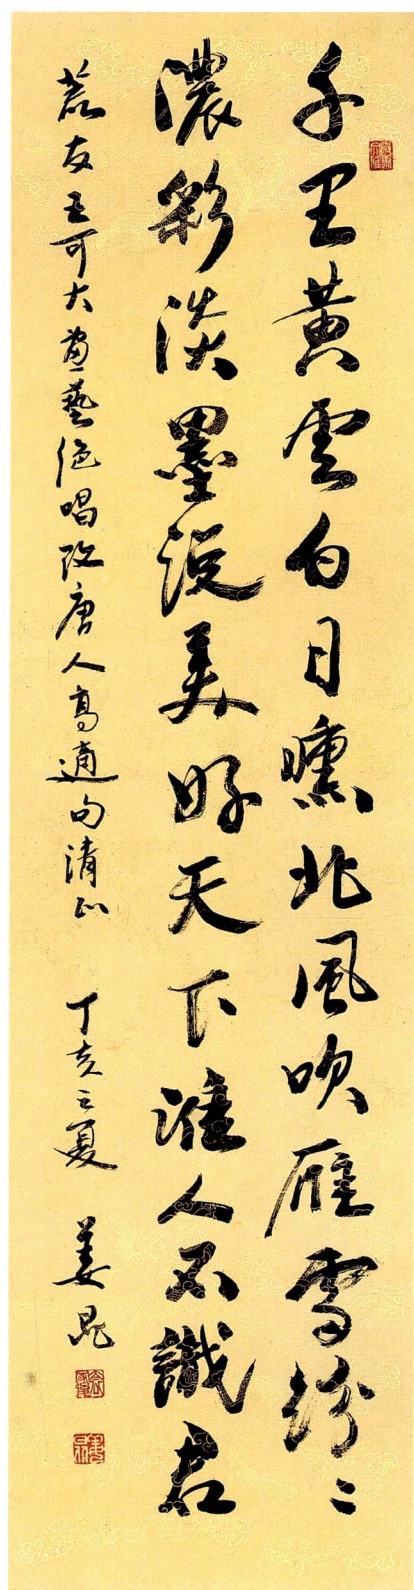 千里黄云白日曛北风吹雁雪纷々
濃彩淡墨説美好天下谁人不識君
荒友王可大畫藝绝唱改唐人高適句清正 丁亥之夏 姜昆